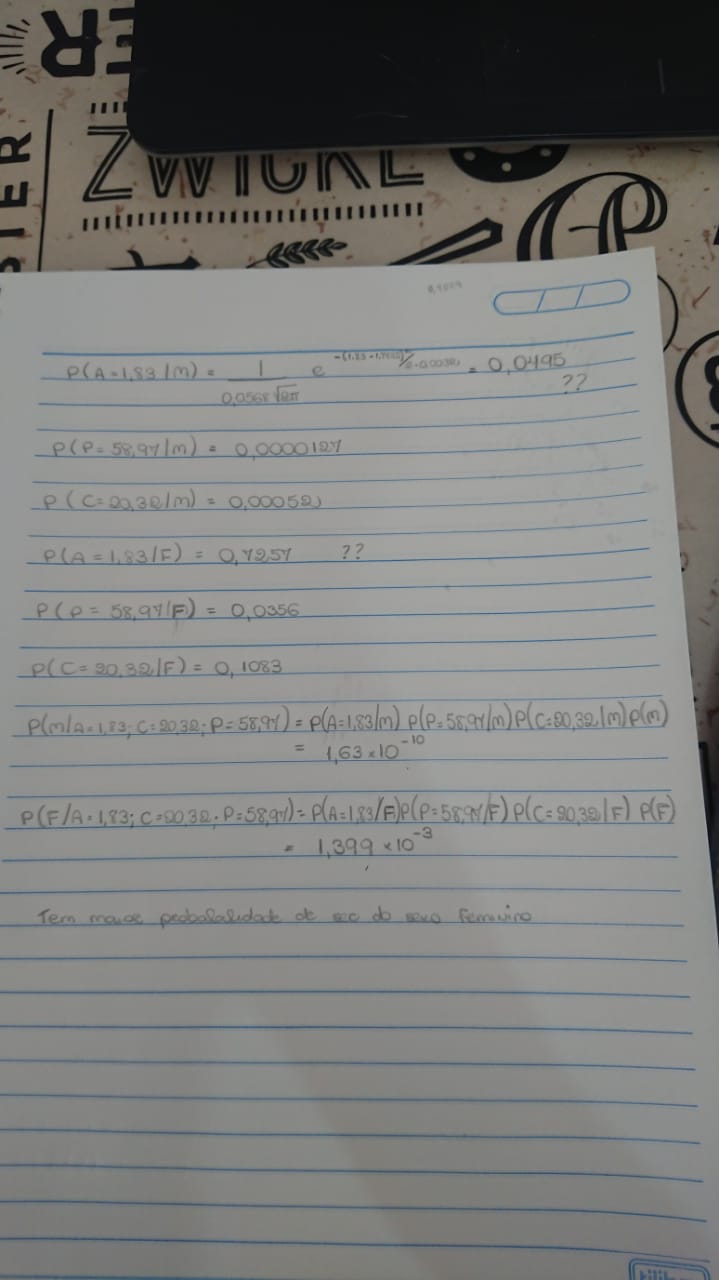 ER
STER
ZWICKL
P(A=1,83/m) = 1 / 0,0568 √2π e = 0,0495
??
P(P=58,97/m) = 0,0000127
P(C=20,32/m) = 0,00052
P(A=1,83/F) = 0,7257 ??
P(P=58,97/F) = 0,0356
P(C=20,32/F) = 0,1083
P(m/A=1,83; C=20,32; P=58,97) = P(A=1,83/m) P(P=58,97/m) P(C=20,32/m) P(m)
= 1,63 × 10^-10
P(F/A=1,83; C=20,32; P=58,97) = P(A=1,83/F) P(P=58,97/F) P(C=20,32/F) P(F)
= 1,399 × 10^-3
Tem maior probabalidade de ser do sexo feminino